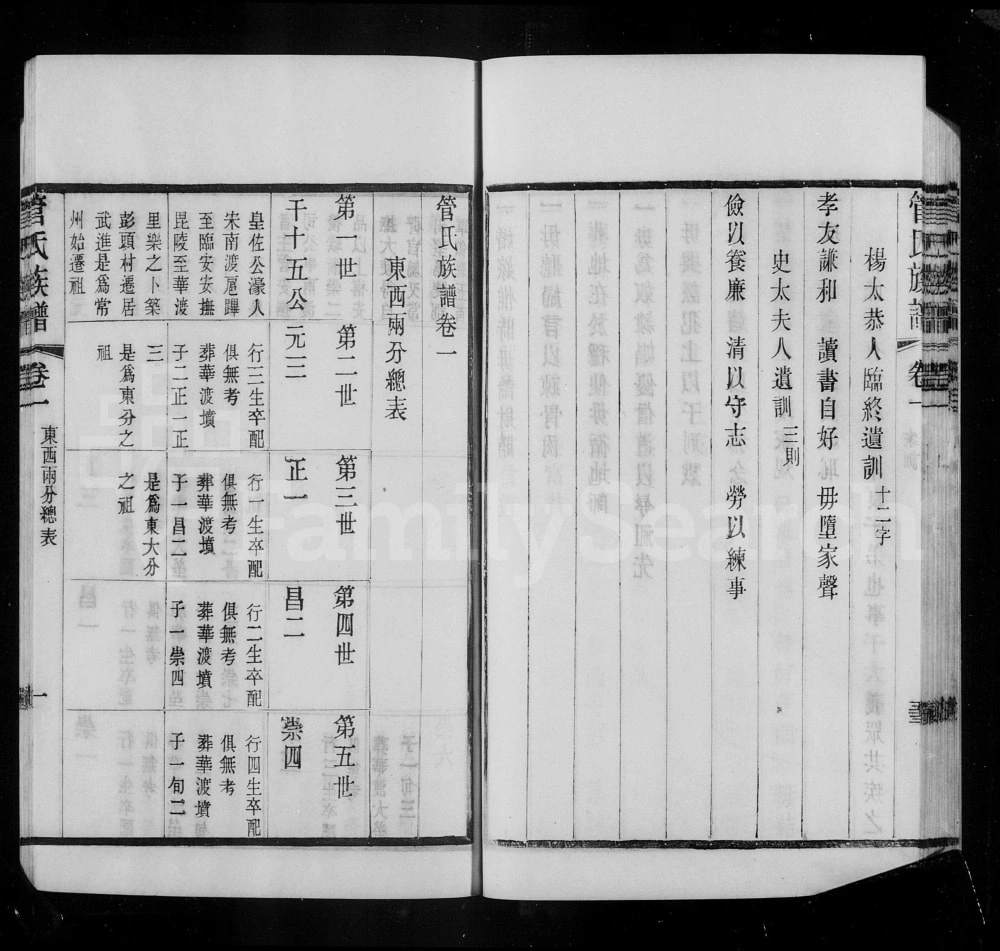 管氏族譜
卷一
楊太恭人臨終遺訓 十二字
孝友謙和 讀書自好 毋墮家聲
史太夫人遺訓 三則
儉以養廉 清以守志 勞以練事
管氏族譜卷一
東西兩分總表
第一世
第二世
第三世
第四世
第五世
千十五公
元三
正一
昌二
崇四
皇佐公濠人
宋南渡扈蹕
至臨安安撫
毘陵至華渡
里樂之卜築
彭頭村遷居
武進是爲常
州始遷祖
行三生卒配
俱無考
葬華渡墳
子二正一正
三
是爲東分之
祖
行一生卒配
俱無考
葬華渡墳
子一昌二
是爲東大分
之祖
行二生卒配
俱無考
葬華渡墳
子一崇四
行四生卒配
俱無考
葬華渡墳
子一旬二
管氏族譜
卷一
東西兩分總表
一
FamilySearch